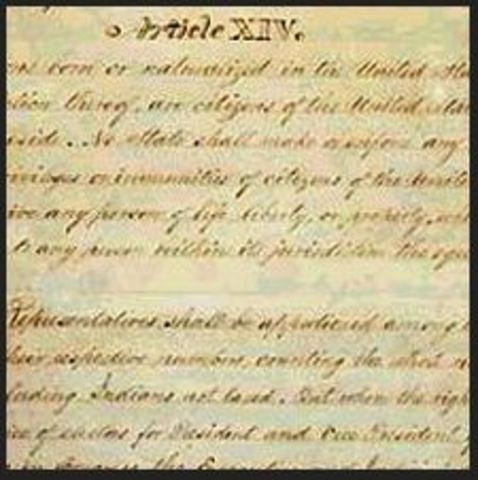 Article XIV.
ons born or naturalized in the United Sta
ction thereof, are citizens of the United Stat
reside. No State shall make or enforce any
rivileges or immunities of citizens of the Unite
rive any person of life, liberty, or property, wit
to any person within its jurisdiction the equ
Representatives shall be apportioned among
their respective numbers, counting the whole n
luding Indians not taxed. But when the righ
ice of electors for President and Vice President